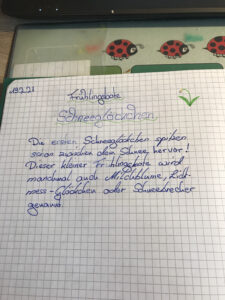 19.2.21
Frühlingsbote
Schneeglöckchen
Die ersten Schneeglöckchen spitzen
schon zwischen dem Schnee hervor!
Dieser kleiner Frühlingsbote wird
manchmal auch Milchblume, Licht-
mess-Glöckchen oder Schneebrecher
genannt.